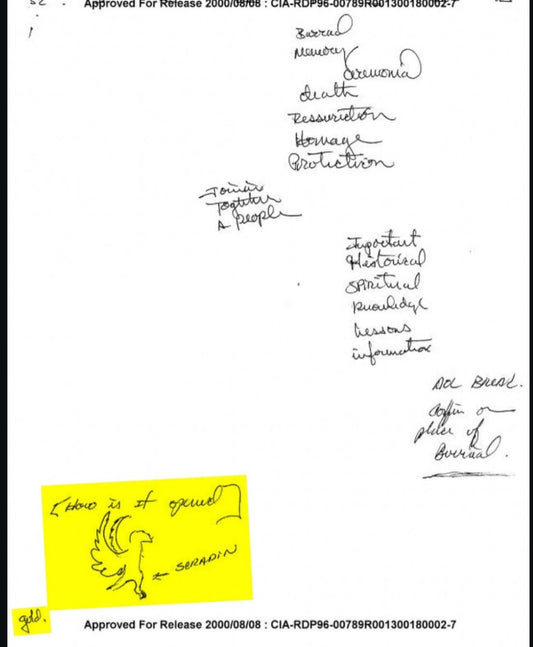 Approved For Release 2000/08/08 : CIA-RDP96-00789R001300180002-7
Burrial
Memory
Ceremonial
death
Ressurection
Homage
Protection
Joinin
Together
A people
Important
Historical
Spiritual
knowledge
Lessons
information
AOL BREAK.
Coffin or
place of
Burrial.
[How is it opened]
SERAPIN
gold.
Approved For Release 2000/08/08 : CIA-RDP96-00789R001300180002-7